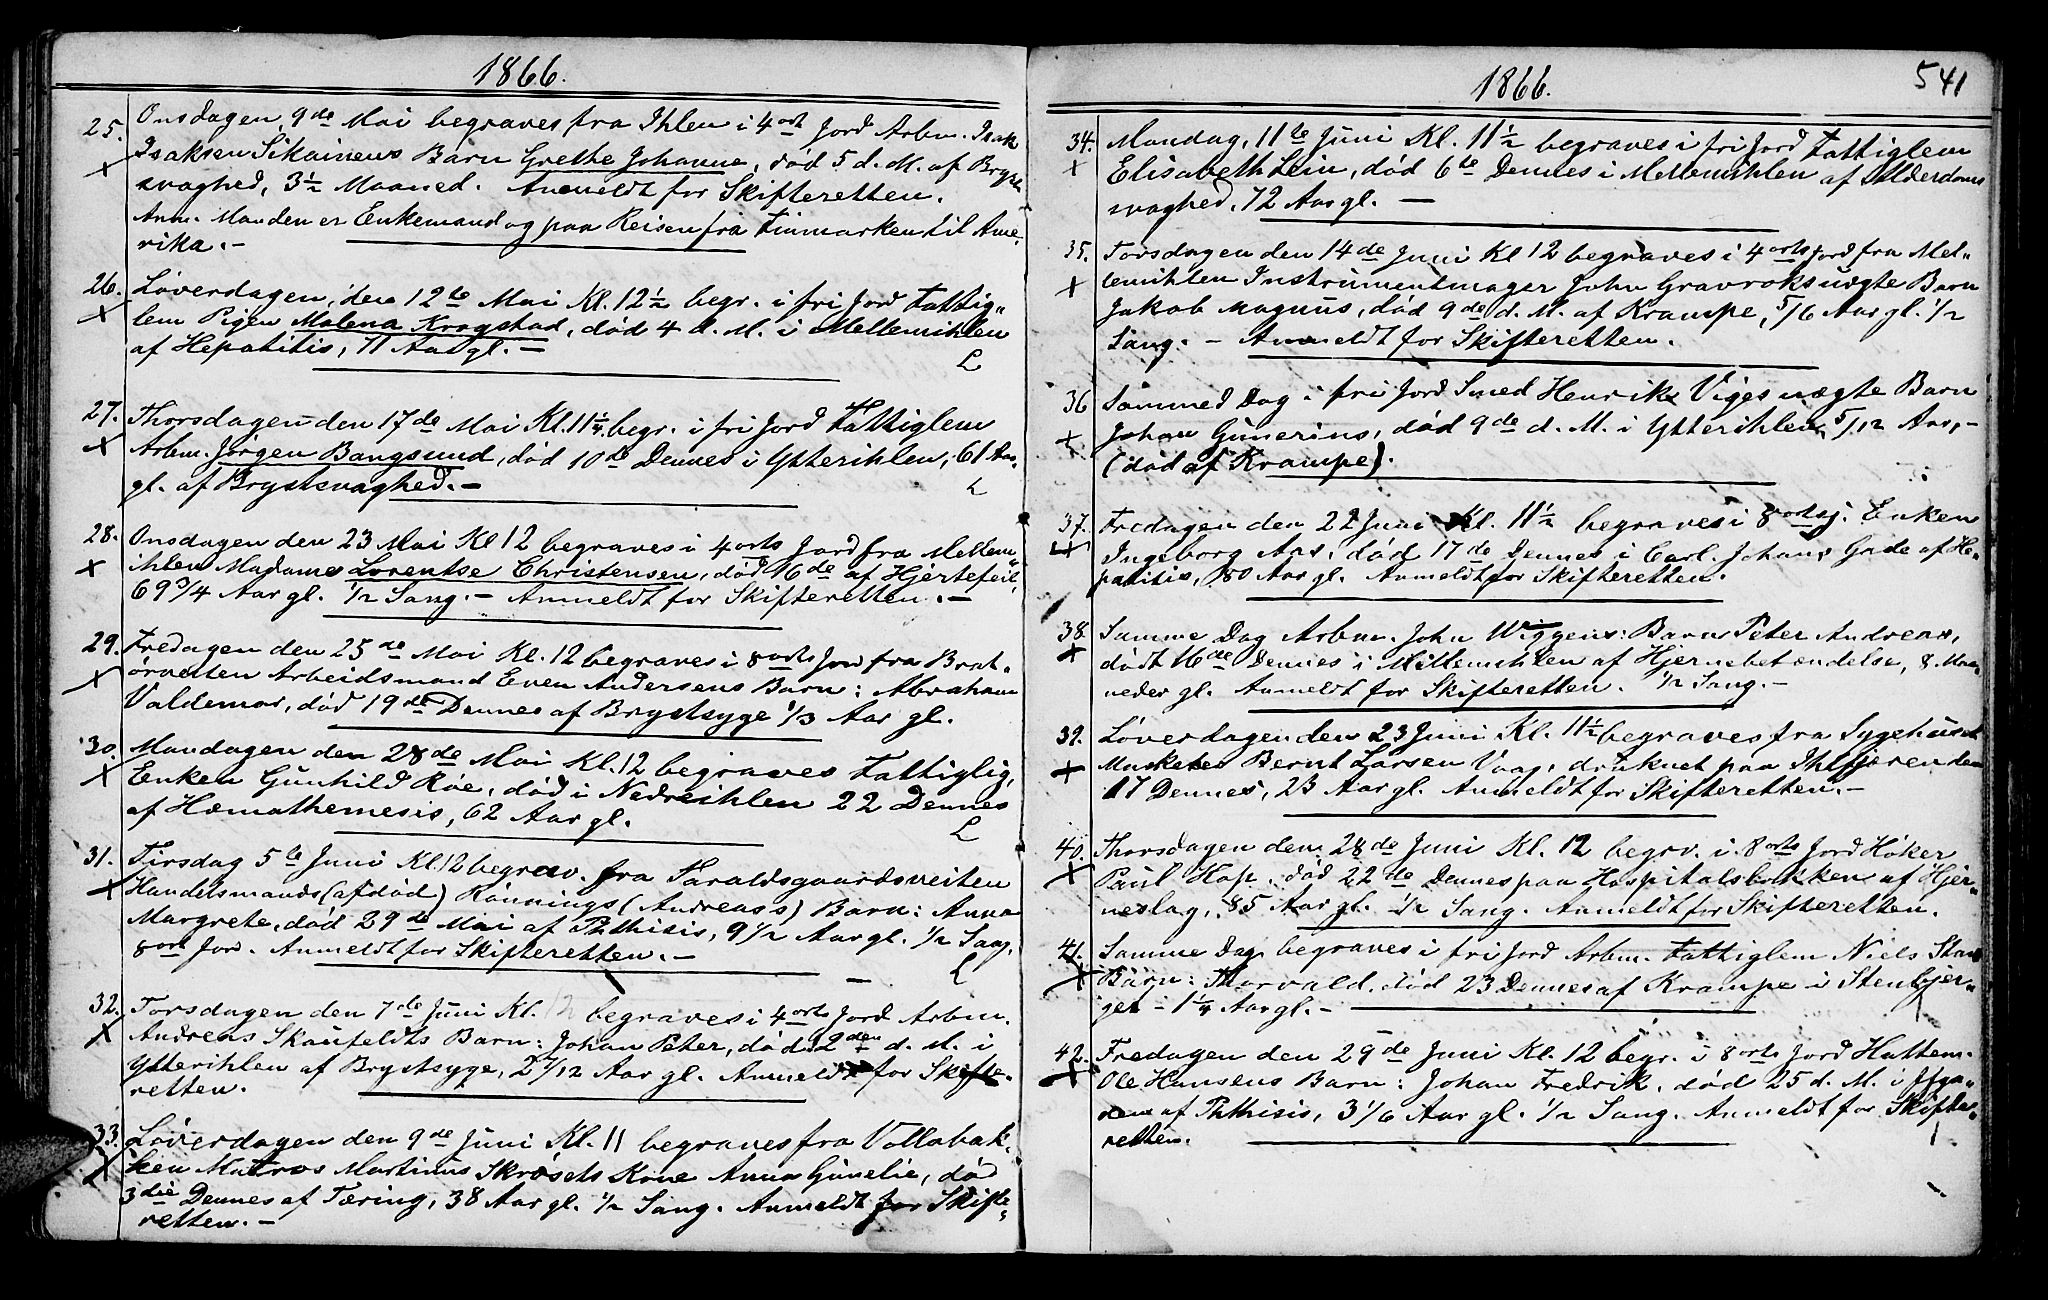 1866.
25. Onsdagen, 9de Mai begraves fra Ihlen i 4ort Jord Arbm. Isak
Isaksen Sikainens Barn Grethe Johanne, død 5 d. M. af Bryst
svaghed, 3½ Maaned. Anmeldt for Skifteretten.
Anm. Manden er Enkemand og paa Reisen fra Finmarken til Ame,
rika. –
26. Løverdagen, den 12te Mai Kl. 12½ begr. i fri Jord Fattig„
lem Pigen Malena Krogstad, død 4 d. M. i Mellemihlen
af Hepatitis, 71 Aar gl. –
L
27. Thorsdagen den 17de Mai Kl. 11¼ begr. i fri Jord Fattiglem
Arbm. Jørgen Bangsund, død 10de Dennes i Ytterihlen, 61 Aar
gl. af Brystsvaghed. –
L
28. Onsdagen den 23 Mai Kl 12 begraves i 4orts Jord fra Mellem„
ihlen Madame Lorentse Christensen, død 16de af Hjertefeil,
69¾ Aar gl. ½ Sang. – Anmeldt for Skifteretten. –
29. Fredagen den 25de Mai Kl. 12 begraves i 8orts Jord fra Brat„
ørveiten Arbeidsmand Even Andersens Barn: Abraham
Valdemar, død 19de Dennes af Brystsyge ⅓ Aar gl.
30. Mandagen den 28de Mai Kl. 12 begraves Fattiglig,
Enken Gunhild Røe, død i Nedreihlen 22 Dennes
af Hæmathemesis, 62 Aar gl.
L
31. Tirsdag 5te Juni Kl. 12 begrav. fra Haraldsgaardsveiten
Handelsmands (afdød) Rønnings (Andreas's) Barn: Anna
Margrete, død 29de Mai af Phthisis, 9½ Aar gl. ½ Sang,
8ort Jord. Anmeldt for Skifteretten. –
L
32. Torsdagen den 7de Juni Kl. 12 begraves i 4orts Jord Arbm.
Andreas Skaufeldts Barn: Johan Peter, død 2den d. M. i
Ytterihlen af Brystsyge, 2 7/12 Aar gl. Anmeldt for Skifte„
retten.
33. Løverdagen den 9de Juni Kl. 11 begraves fra Vollabak„
ken Matros Martinus Skrøsets Kone Anna Gunelie, død
3die Dennes af Tæring, 38 Aar gl. ½ Sang. Anmeldt for Skifte„
retten. –
1866.
541
34. Mandag, 11te Juni Kl. 11½ begraves i fri Jord Fattiglem
Elisabeth Lein, død 6te Dennes i Mellemihlen af Alderdoms
svaghed. 72 Aar gl. –
35. Torsdagen den 14de Juni Kl 12 begraves i 4orts Jord fra Mel„
lemihlen Instrumentmager John Gravroks uægte Barn
Jakob Magnus, død 9de d. M. af Krampe, 5/6 Aar gl. ½
Sang. – Anmeldt for Skifteretten.
36 Sammed Dag i fri Jord Smed Henrik Viges uægte Barn
Johan Gunerius, død 9de d. M. i Ytterihlen 5/12 Aar, –
(død af Krampe).
37. Fredagen den 22 Juni Kl. 11½ begraves i 8orts j. Enken
Ingeborg Aas, død 17de Dennes i Carl Johans Gade af He„
patitis, 80 Aar gl. Anmeldt for Skifteretten.
38. Samme Dag Arbm. John Wiggens: Barn Peter Andreas,
dødt 16de Dennes i Mellemihlen af Hjernebetændelse, 8 Maa„
neder gl. Anmeldt for Skifteretten. ½ Sang. –
39. Løverdagen den 23 Juni Kl. 11½ begraves fra Sygehuset
Musketer Bernt Larsen Vaag, druknet paa Ihlfjæren den
17 Dennes, 23 Aar gl. Anmeldt for Skifteretten. –
40. Thorsdagen den 28de Juni Kl. 12 begrv. i 8orts Jord Høker
Paul Kap, død 22de Dennes paa Hospitalsløkken af Hjer„
neslag, 85 Aar gl. ½ Sang. Anmeldt for Skifteretten.
41. Samme Dag begraves i fri Jord Arbm. Fattiglem Niels
Barn: Thorvald, død 23 Dennes af Krampe i Stenbjer„
get – 1¼ Aar gl. –
42. Fredagen den 29de Juni Kl. 12 begr. i 8orts Jord Huttem.
Ole Hansens Barn: Johan Fredrik, død 25 d. M. i
af Phthisis, 3 1/6 Aar gl. ½ Sang. Anmeldt for Skifte„
retten.